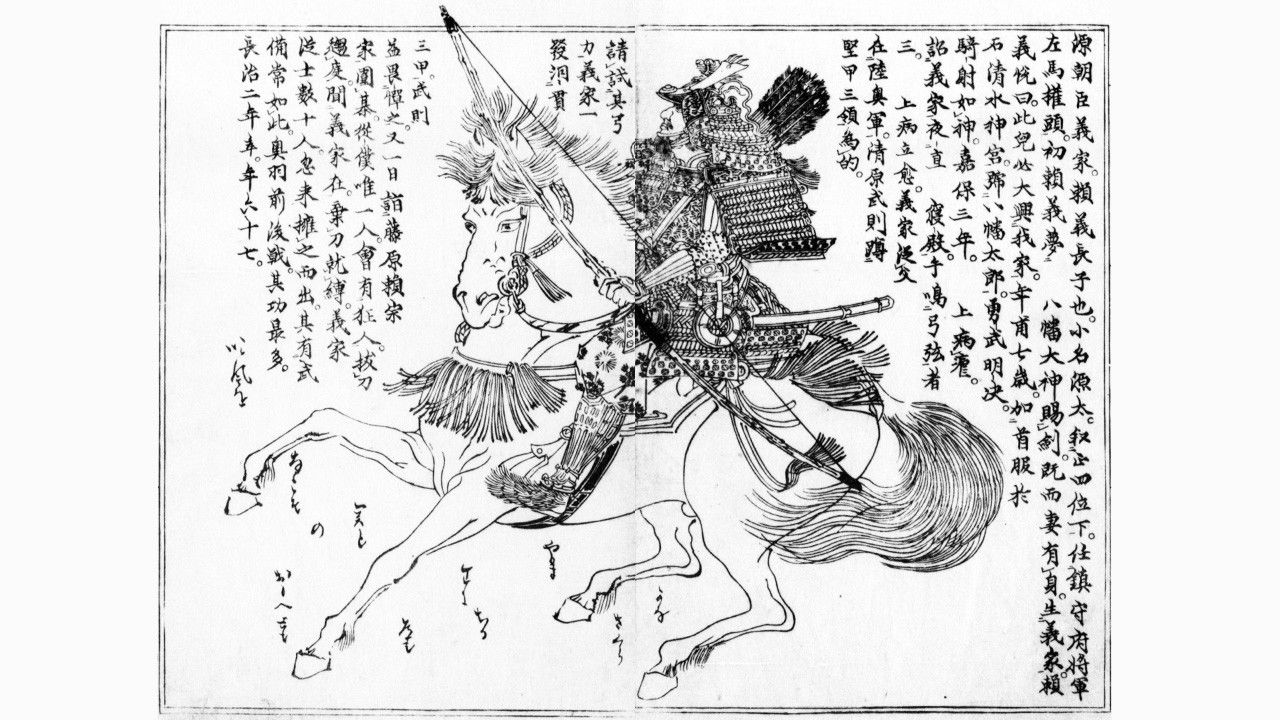 源朝臣義家。賴義長子也。小名源太。叙正四位下。任鎮守府將軍
左馬權頭。初賴義夢 八幡大神賜劍。既而妻有身。生義家。賴
義悅曰。此兒必大興我家。年甫七歲。加首服於
石清水神宮。號八幡太郎。勇武明决。
騎射如神。嘉保三年。 上病瘧。
詔義家夜直 寢殿手鳴弓弦者
三。 上病立愈。義家從父
在陸奥軍。清原武則
堅甲三領為的。
請試其弓
力義家一
發洞貫
三甲。武則
益畏憚之。又一日詣藤原賴宗
家圍碁。從僕唯一人。會有狂人拔刀
趨度聞義家在。棄刀就縛。義家
從士數十人忽来擁之而出。其有武
備常如此。奥羽前後戰。其功最多。
長治二年卒。年六十七。
吹風を
なこそ
の
関と
おもへとも
道も
せに
ちる
やま
さくら
かな